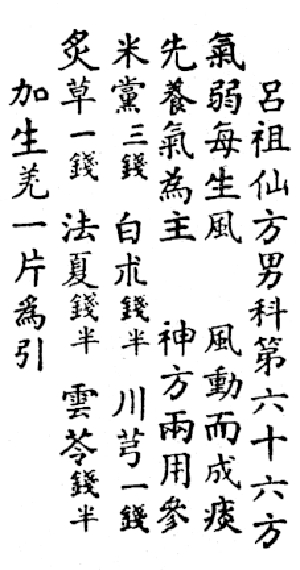 呂祖仙方男科第六十六方
氣弱每生風　風動而成痰
先養氣為主　神方兩用參
米黨三錢　白朮錢半　川芎一錢
炙草一錢　法夏錢半　雲苓錢半
加生羌一片為引